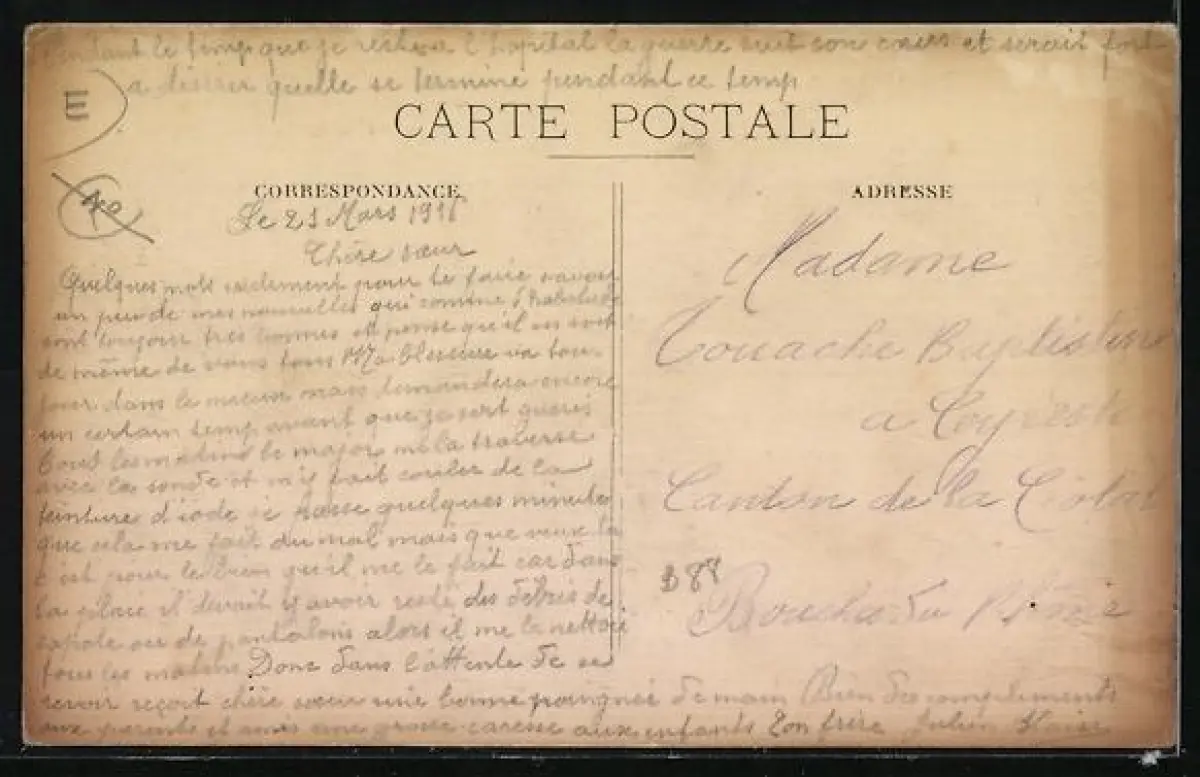 Pendant le temp que je reste a l'hopital la guerre suit son cours et serait fort
a désirer quelle se termine pendant ce temp
E
CARTE POSTALE
40
CORRESPONDANCE
ADRESSE
Le 21 Mars 191
Chère sœur
Quelques mots seulement pour te faire savoir
un peu de mes nouvelles qui comme d'habitude
sont toujour tres bonnes et pense qu'il en soit
de même de vous tous Ma blessure va tou-
jour dans le mieux mais demandera encore
un certain temp avant que je sort gueris
Tout les matins le major me la traverse
avec la sonde et m'y fait couler de la
teinture d'iode se passe quelques minute
que cela me fait du mal mais que veux tu
c'est pour le bien qu'il me le fait car dans
la place il devait y avoir resté des débris de
capote ou de pantalons alors il me la nettoie
tous les matins Donc dans l'attente de se
revoir reçoit chère sœur une bonne poingnée de main Bien des compliments
aux parents et amis une grosse caresse aux enfants Ton frère Julien
Madame
Touache Baptistin
a Ceyreste
Canton de la Ciotat
B88
Bouche du Rhône